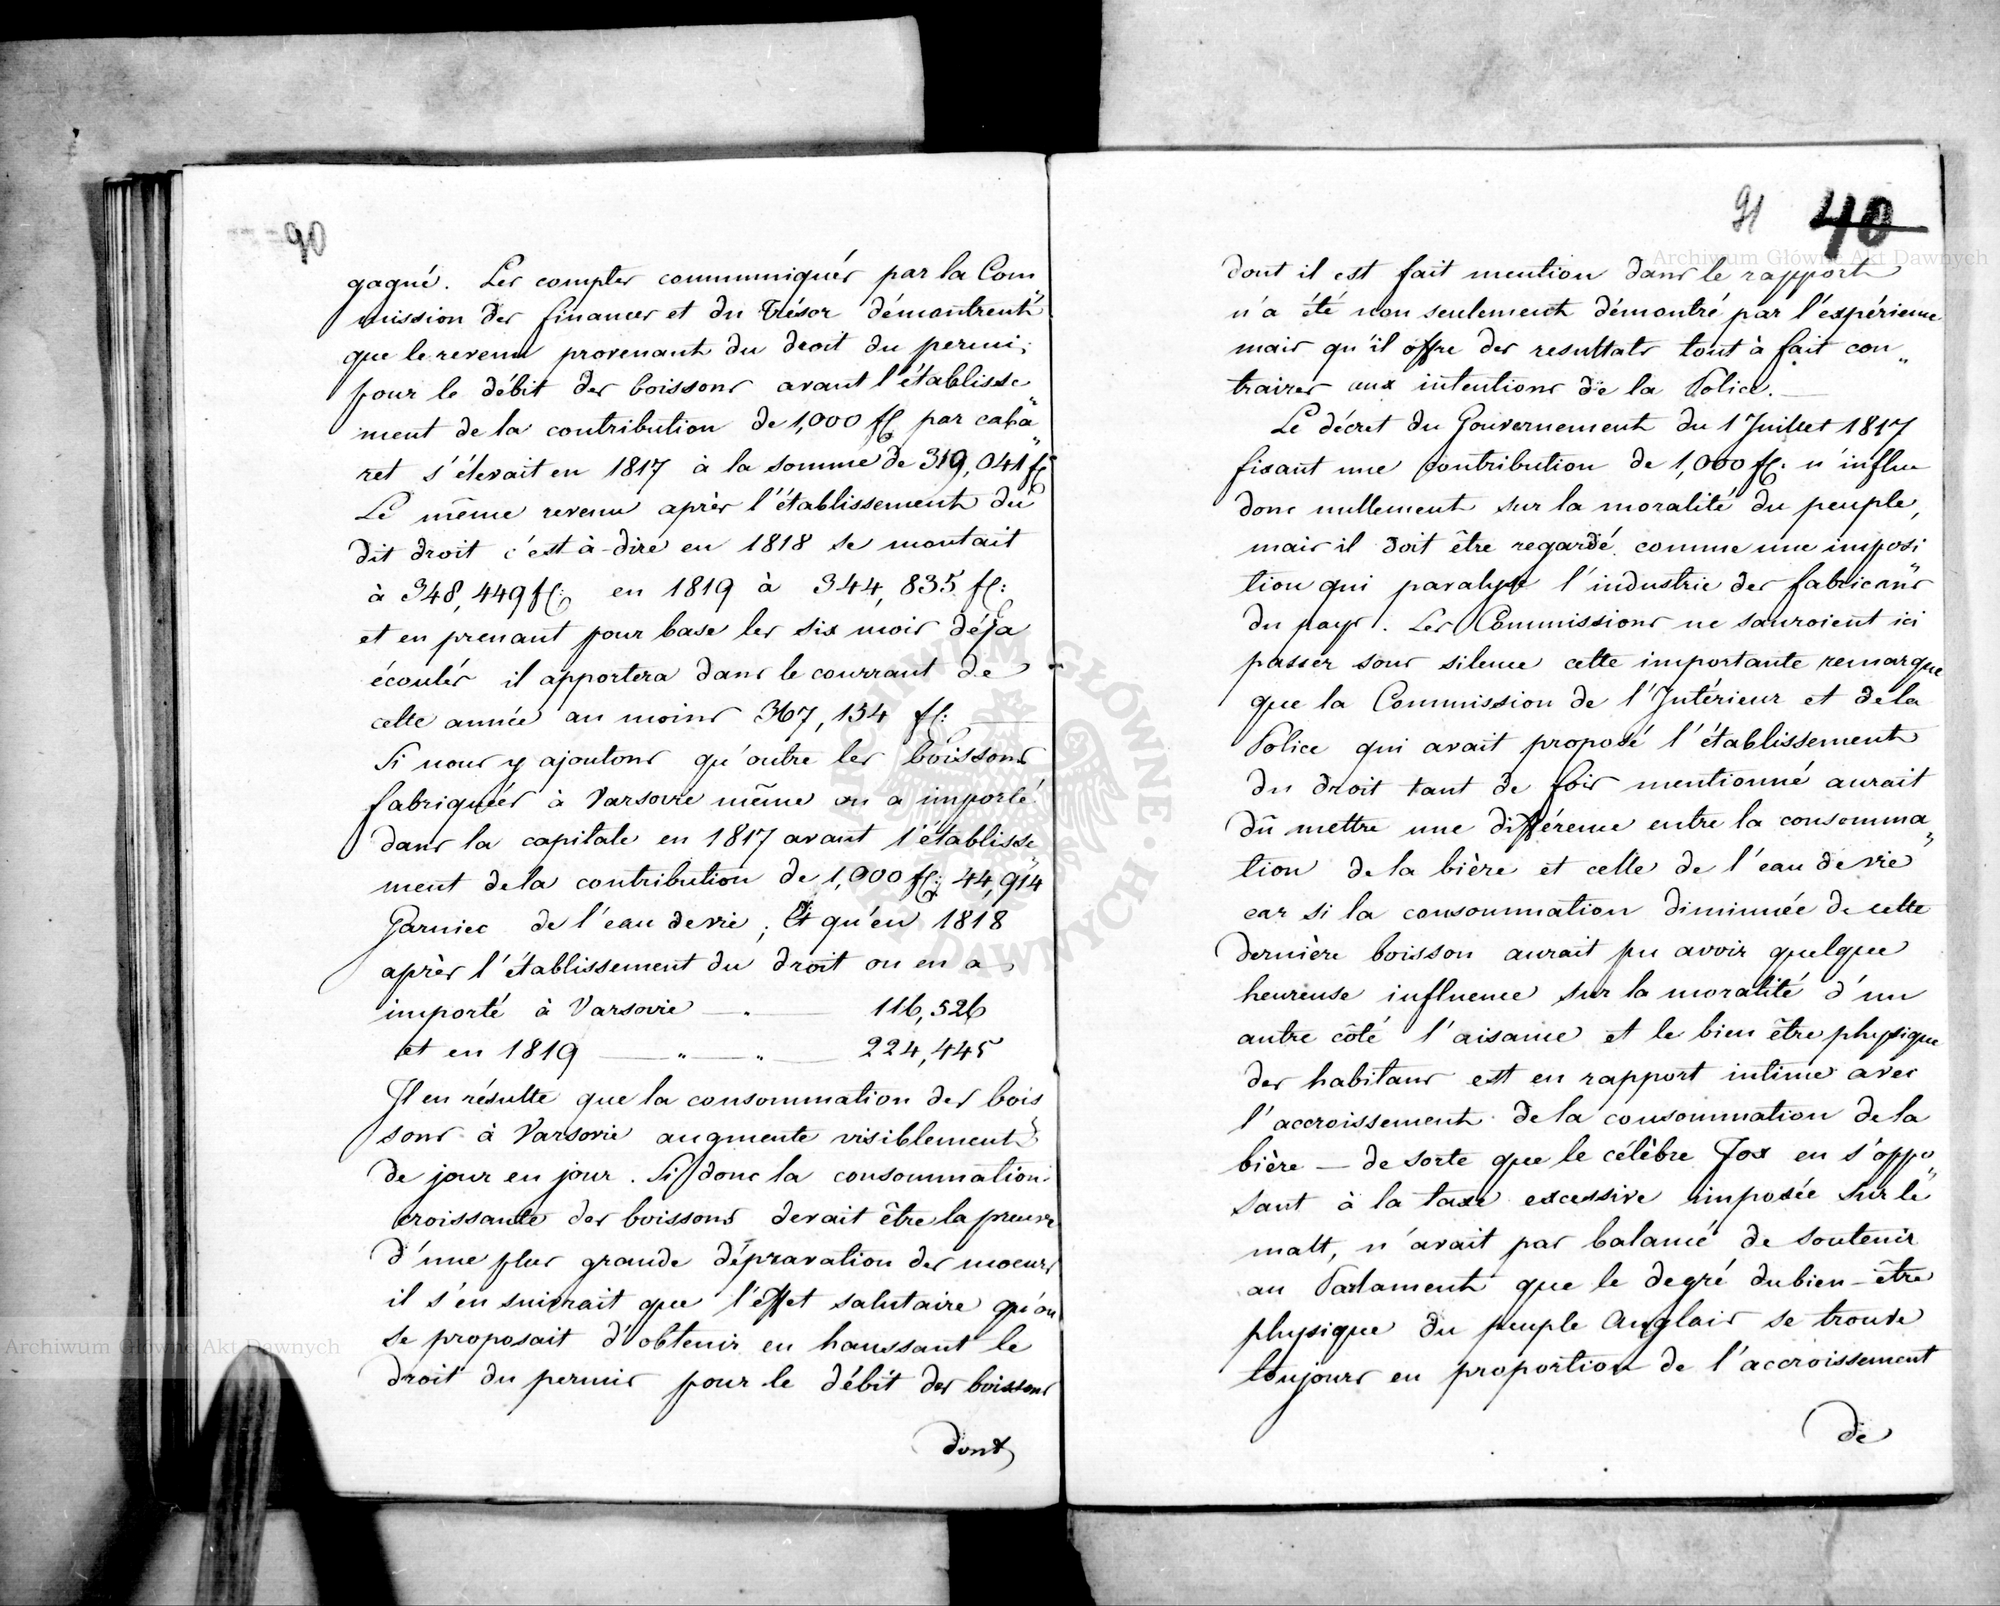 90
gagné. Les comptes communiqués par la Com„
mission des finances et du Trésor démontrent
que le revenu provenant du droit du permi;
pour le débit des boissons avant l'établisse„
ment de la contribution de 1,000 fl par caba„
ret s'élevait en 1817 à la somme de 319,041 fl
Le même revenu après l'établissement du
dit droit c'est à-dire en 1818 se montait
à 348,449 fl: en 1819 à 344,835 fl:
et en prenant pour base les six mois déja
écoulés il apportera dans le courrant de
cette année au moins 367,154 fl:
Si nous y ajoutons qu'outre les boissons
fabriquées à Varsovie même on a importé
dans la capitale en 1817 avant l'établisse„
ment de la contribution de 1,000 fl: 44,914
Garniec de l'eau de vie; Et qu'en 1818
après l'établissement du droit on en a
importé à Varsovie — „ — 116,526
et en 1819 — „ — „ — 224,445
Il en résulte que la consommation des bois„
sons à Varsovie augmente visiblement
de jour en jour. Si donc la consommation
croissante des boissons devait être la preuve
d'une plus grande dépravation des moeurs
il s'en suivrait que l'effet salutaire qu'on
se proposait d'obtenir en haussant le
droit du permis pour le débit des boissons
dont
91 40
dont il est fait mention dans le rapport
n'a été non seulement démontré par l'expérience
mais qu'il offre des resultats tout à fait con„
traires aux intentions de la Police. —
Le décret du Gouvernement du 1 Juillet 1817
fixant une contribution de 1,000 fl: n'influe
donc nullement sur la moralité du peuple,
mais il doit être regardé comme une imposi„
tion qui paralyse l'industrie des fabricans
du pays. Les Commissions ne sauroient ici
passer sous silence cette importante remarque
que la Commission de l'Intérieur et de la
Police qui avait proposé l'établissement
du droit tant de fois mentionné aurait
dû mettre une différence entre la consomma„
tion de la bière et celle de l'eau de vie
car si la consommation diminuée de cette
dernière boisson aurait pu avoir quelque
heureuse influence sur la moralité d'un
autre côté l'aisance et le bien être physique
des habitans est en rapport intime avec
l'accroissement de la consommation de la
bière — de sorte que le célèbre Fox en s'oppo„
sant à la taxe excessive imposée sur le
malt, n'avait pas balancé de soutenir
au Parlament que le degré du bien-être
physique du peuple Anglais se trouve
toujours en proportion de l'accroissement
de
Archiwum Główne Akt Dawnych
Archiwum Główne Akt Dawnych
ARCHIWUM GŁÓWNE AKT DAWNYCH